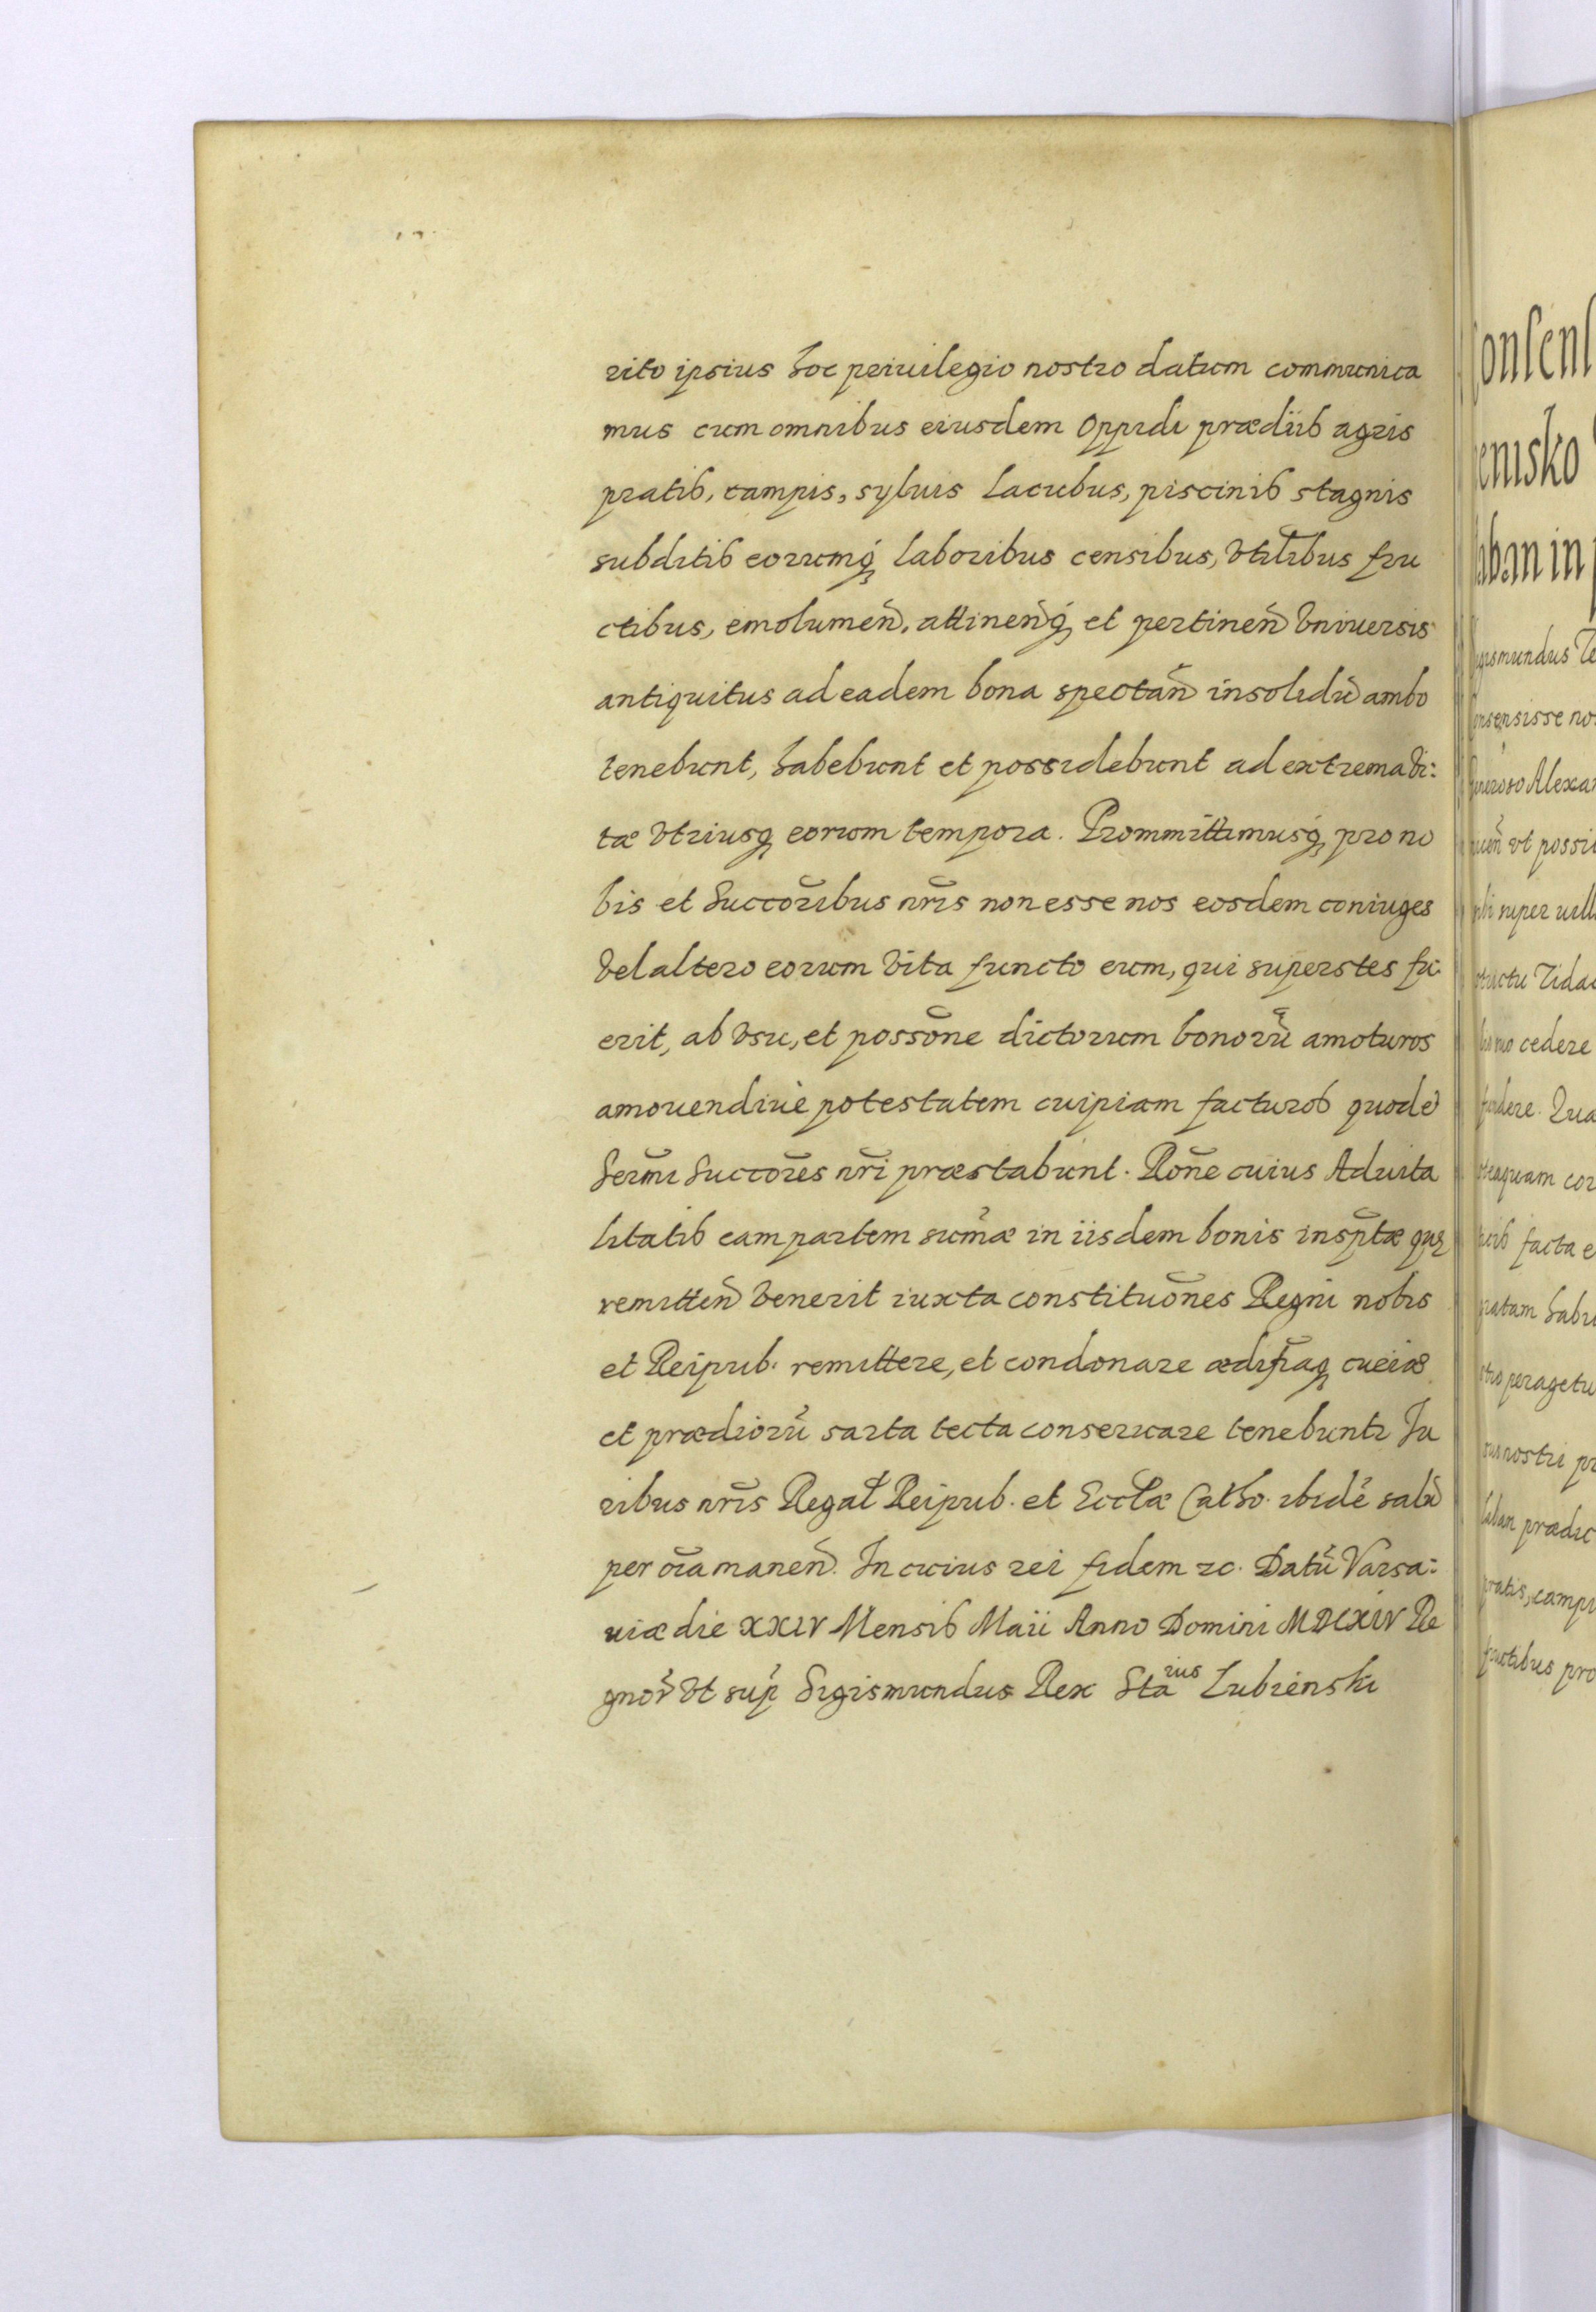 rito ipsius hoc priuilegio nostro datum communica
mus cum omnibus eiusdem Oppidi prædiis agris
pratis, campis, syluis lacubus, piscinis stagnis
subditis eorumq́ꝫ laboribus censibus, vtilibus fru
ctibus, emolumeñ, attineñq́ꝫ et pertineñ vniuersis
antiquitus ad eadem bona spectañ insolidũ ambo
tenebunt, habebunt et possidebunt ad extrema vi:
tæ vtriusqꝫ eorum tempora. Prommittimusq́ꝫ pro no
bis et Succõribus nr̃is non esse nos eosdem coniuges
vel altero eorum vita functo eum, qui superstes fu:
erit, ab vsu, et possõne dictorum bonorũ amoturos
amouendiuè potestatem cuipiam facturos quodẽ
Serm̃i Succõres nr̃i præstabunt. Rõne cuius Aduita
litatis eam partem sum̃æ in iisdem bonis insp̃tæ quæ
remitteñ venerit iuxta constituõnes Regni nobis
et Reipub. remittere, et condonare
et prædiorũ sarta tecta conseruare tenebuntr Iu
ribus nr̃is Regal̃ Reipub. et Eccl̃æ Catho. ibidẽ salũ
per õia maneñ. In cuius rei fidem ꝛc. Datũ Varsa:
uiæ die XXIV Mensis Maii Anno Domini MDCXIV Re
gnor̃ vt sup̃ Sigismundus Rex Sta<sup>ius</sup> Lubienski
onsens
enisko
aban in p
gismundus Te
nsensisse no
neroso Alexa
ueñ vt possi
bi super uill
trictu Tida
cedere
Qua
quam cor
facta e
ratam habi
peragetu
nostri pr
aban prædic
pratis, campi
fructibus pro